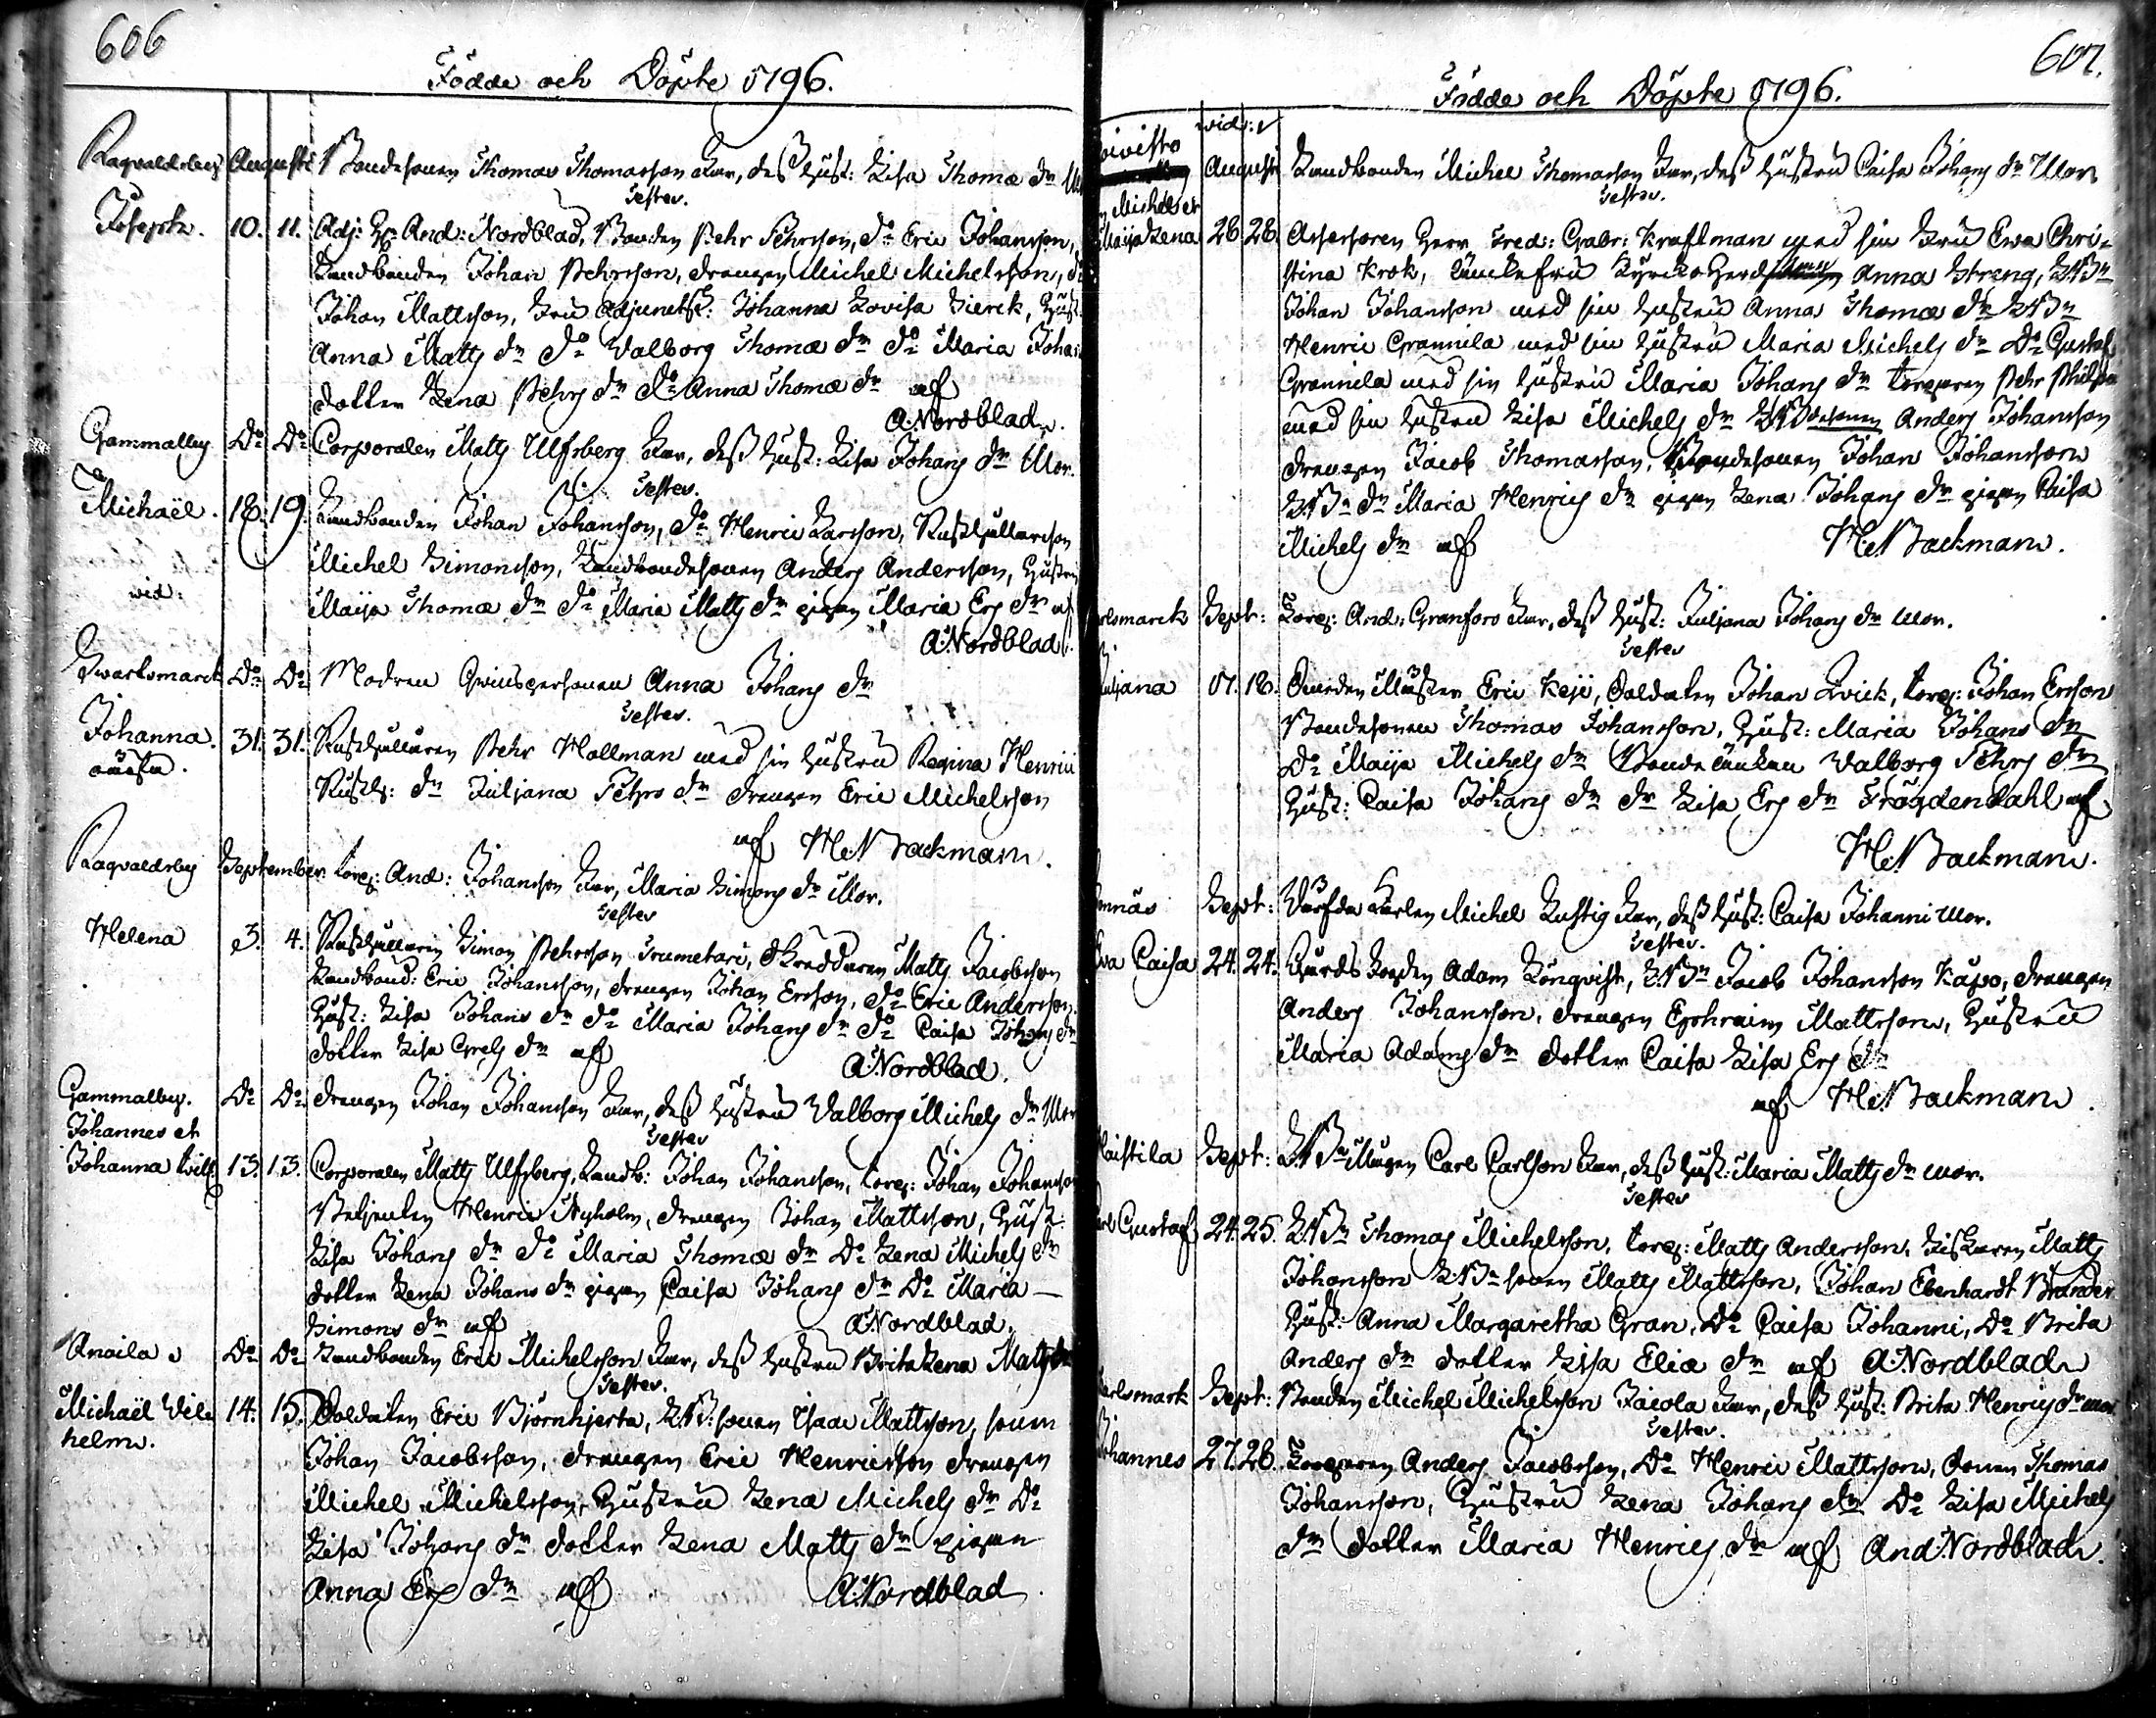 606
Födde och Döpte 1796.
Ragvaldsby Augusti Bondesonen Thomas Thomasson Far, dess Hust: Lisa Thomæ dr
Testes.
Joseph. 10. 11. Adj: Hr And: Nordblad, Bonden Pehr Pehrsson, do Eric Johansson,
Landbonden Johan Pehrsson, drengen Michel Michelsson, do
Johan Mattsson, Fru Adjunctsk: Johanna Lovisa Hierck, Hust:
Anna Matts dr do Walborg Thomæ dr do Maria Johans
dotter Lena Pehrs dr do Anna Thomæ dr af
A: Nordblad.
Gammalby Do Do Corporalen Matts Ulfsberg Far, dess Hust: Lisa Johans dr Mor.
Testes.
Michaël. 18. 19. Landbonden Johan Johansson, do Henric Larsson, Rusthållarson
Michel Simonsson, Landbondesonen Anders Andersson, Hustru
wid: Maija Thomæ dr do Maria Matts dr pigan Maria Ers dr af
A: Nordblad.
Svartsmarck Do Do Modren Qvinspersonen Anna Johans dr
Testes.
Johanna. 31. 31. Rusthållaren Pehr Hallman med sin Hustru Regina Henrici
oäkta. Rusth: dr Juljana Pehrs dr drengen Eric Michelsson
af H: Backman.
Ragvaldsby September torp: And: Johansson Far, Maria Simons dr Mor.
Testes
Helena 3. 4. Rusthållaren Simon Pehrsson Trumetari, Skreddaren Matts Jacobsson
Landbond: Eric Johansson, drengen Johan Ersson, do Eric Andersson,
Hust: Lisa Johans dr do Maria Johans dr do Caisa Johans dr
dotter Lisa Grels dr af
A: Nordblad.
Gammalby. Do Do drengen Johan Johansson Far, dess Hustru Walborg Michels dr Mor
Johannes et Testes
Johanna tvill. 13. 13. Corporalen Matts Ulfsberg, Landb: Johan Johansson, torp: Johan Johansson
Betjenten Henric Nyholm, drengen Johan Mattsson, Hust:
Lisa Johans dr do Maria Thomæ dr Do Lena Michels dr
dotter Lena Johans dr pigan Caisa Johans dr Do Maria
Simons dr af A: Nordblad.
Anoila Do Do Landbonden Eric Michelsson Far, dess Hustru Brita Lena Matts dr
Testes.
Michaël Wil- 14. 15. Soldaten Eric Björnhjerta, L.B: sonen Isaac Mattsson, sonen
helm. Johan Jacobsson, drengen Eric Henricsson drengen
Michel Michelsson, Hustru Lena Michels dr Do
Lisa Johans dr dotter Lena Matts dr pigan
Anna Ers dr af A: Nordblad
607.
Födde och Döpte 1796.
wid:
oivisto Augusti Landbonden Michel Thomasson Far, dess Hustru Caisa Johans dr Mor
Michels et Testes.
Maija Lena 28 28. Assessoren Herr Fred: Gabr: Kraftman med sin Fru Ewa Chri-
stina Krok, änkefru Kyrcko Herd Anna Streng, LBn
Johan Johansson med sin Hustru Anna Thomæ dr LBn
Henric Grannila med sin Hustru Maria Michels dr Do Gustaf
Grannila med sin Hustru Maria Johans dr torparen Pehr
med sin Hustru Lisa Michels dr LB sonen Anders Johansson
drengen Jacob Thomasson, Bondesonen Johan Johansson
LBn dr Maria Henrics dr pigan Lena Johans dr pigan Caisa
Michels dr af H: Backman.
rlsmarck Sept: Torp: And: Granfors Far, dess Hust: Juljana Johans dr Mor.
Testes
Juljana 17. 18. Eric Keji, Soldaten Johan Qvick, torp: Johan Ersson
Bondesonen Thomas Johansson, Hust: Maria Johans dr
Do Maija Michels dr Bonde änkan Walborg Pehrs dr
Hust: Caisa Johans dr dr Lisa Ers dr Frögdendahl af
H: Backman.
nnäs Sept: Michel Lustig Far, dess Hust: Caisa Johanni Mor.
Testes.
Eva Caisa 24. 24. Adam Lönqvist, LBn Jacob Johansson Käpö, drengen
Anders Johansson, drengen Ephraim Mattsson, Hustru
Maria Adams dr dotter Caisa Lisa Ers dr
af H: Backman.
aistila Sept: LBn Mågen Carl Carlsson Far, dess Hust: Maria Matts dr Mor.
Testes
rl Gustaf 24. 25. LBn Thomas Michelsson, torp: Matts Andersson, Fiskaren Matts
Johansson LBn sonen Matts Mattsson, Johan Ebenhardt Brander
Hust: Anna Margaretha Gran, Do Caisa Johanni, Do Brita
Anders dr dotter Lisa Eliæ dr af A: Nordblad
arlsmark Sept: Bonden Michel Michelsson Jacola Far, dess Hust: Brita Henrics dr Mor
Testes.
Johannes 27. 28. Torparen Anders Jacobsson, Do Henric Mattsson, Sonen Thomas
Johansson, Hustru Lena Johans dr Do Lisa Michels
dr dotter Maria Henrics dr af And: Nordblad.